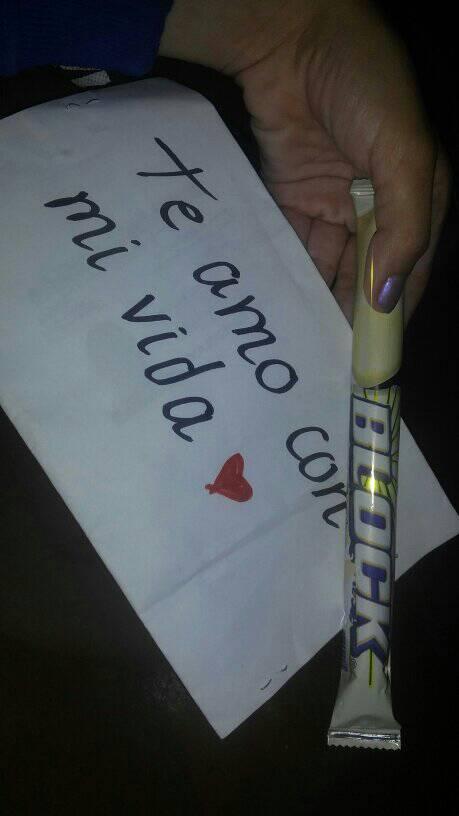 Te amo con
mi vida
BLOCK